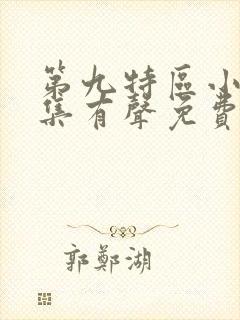 第九特區小
集有聲免費
郭鄭湖